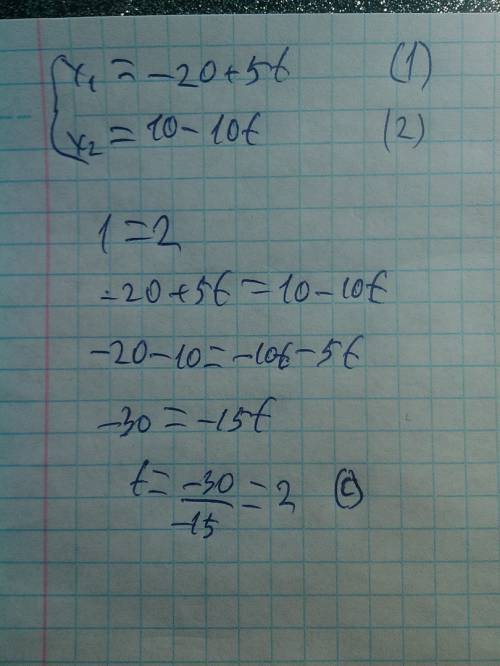 x₁ = -20 + 5t (1)
x₂ = 10 - 10t (2)
1 = 2
-20 + 5t = 10 - 10t
-20 - 10 = -10t - 5t
-30 = -15t
t = -30/-15 = 2 (c)